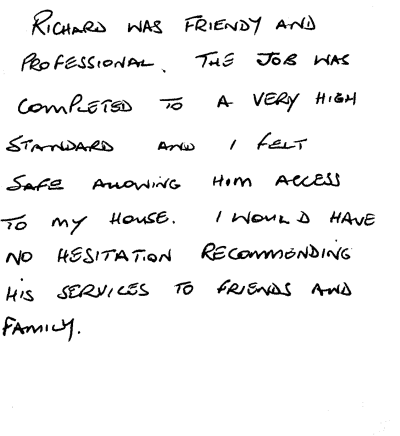 RICHARD WAS FRIENDY AND
PROFESSIONAL. THE JOB WAS
COMPLETED TO A VERY HIGH
STANDARD AND I FELT
SAFE ALLOWING HIM ACCESS
TO MY HOUSE. I WOULD HAVE
NO HESITATION RECOMMENDING
HIS SERVICES TO FRIENDS AND
FAMILY.